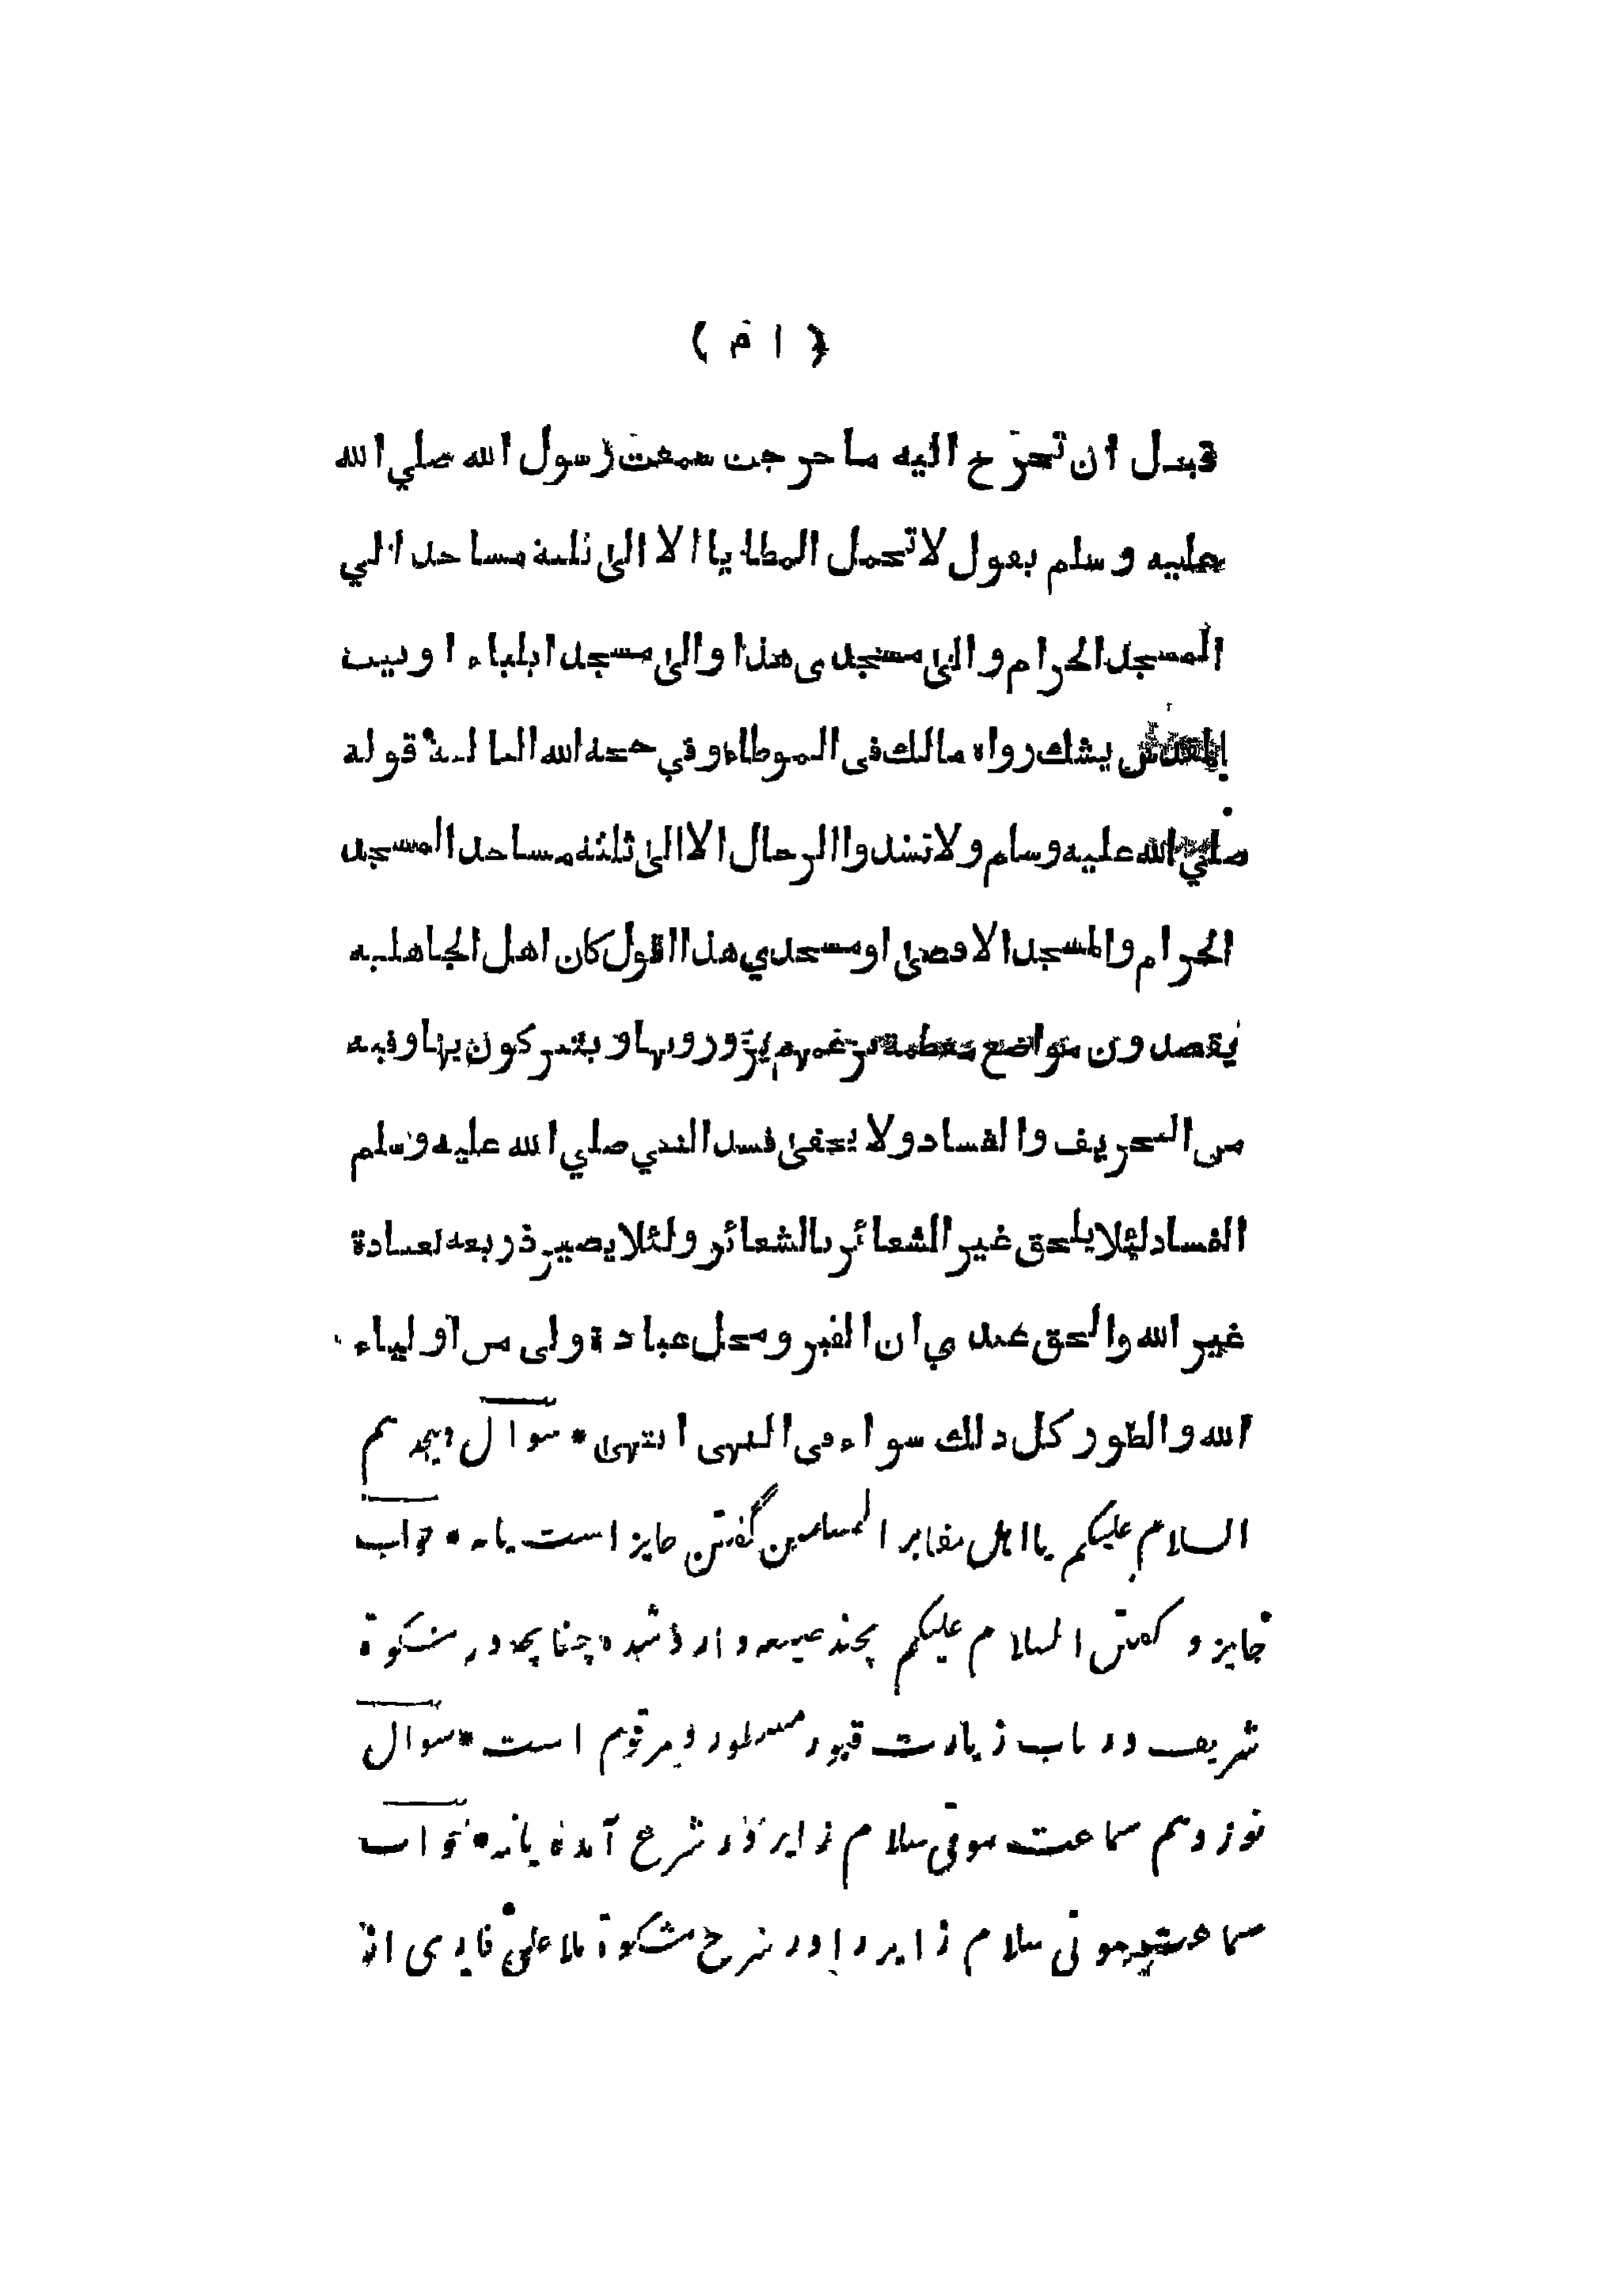 ( ا م )
قبل ان تخرج اليه ما خرجت سمعت رسول الله صلي الله
عليه وسلم يقول لا تحمل المطايا الا الى ثلثة مساجد الي
المسجد الحرام و الى مسجدى هذا و الى مسجد ايلياء او بيت
المقدس يشك رواه مالك فى الموطاء و في حجة الله البالغة قوله
صلي الله عليه وسلم ولا تشدوا الرحال الا الى ثلثة مساجد المسجد
الحرام والمسجد الاقصى او مسجدي هذا اقول كان اهل الجاهلية
يقصدون مواضع معظمة بزعمهم يزورونها و يتبركون بها وفيه
من التحريف والفساد و لا يخفى فسد النبي صلي الله عليه وسلم
الفساد لئلا يلحق غير الشعائر بالشعائر ولئلا يصير ذريعه لعبادة
غير الله والحق عندي ان القبر و محل عبادة ولى من اولياء
الله والطور كل ذلك سواء فى النهى انتهى * سوال هيجدهم
السلام عليكم يا اهل مقابر المسلمين گفتن جايز است يا نه * جواب
جايز و گفتن السلام عليكم بچند صيغه وارد شده چنانچه در مشكوة
شريف در باب زيارت قبور مسطور و مرقوم است * سوال
نوزدهم سماعت موتى سلام زاير در شرع آمده يا نه * جواب
سماعت موتى سلام زاير را در شرح مشكوة ملا على قارى از